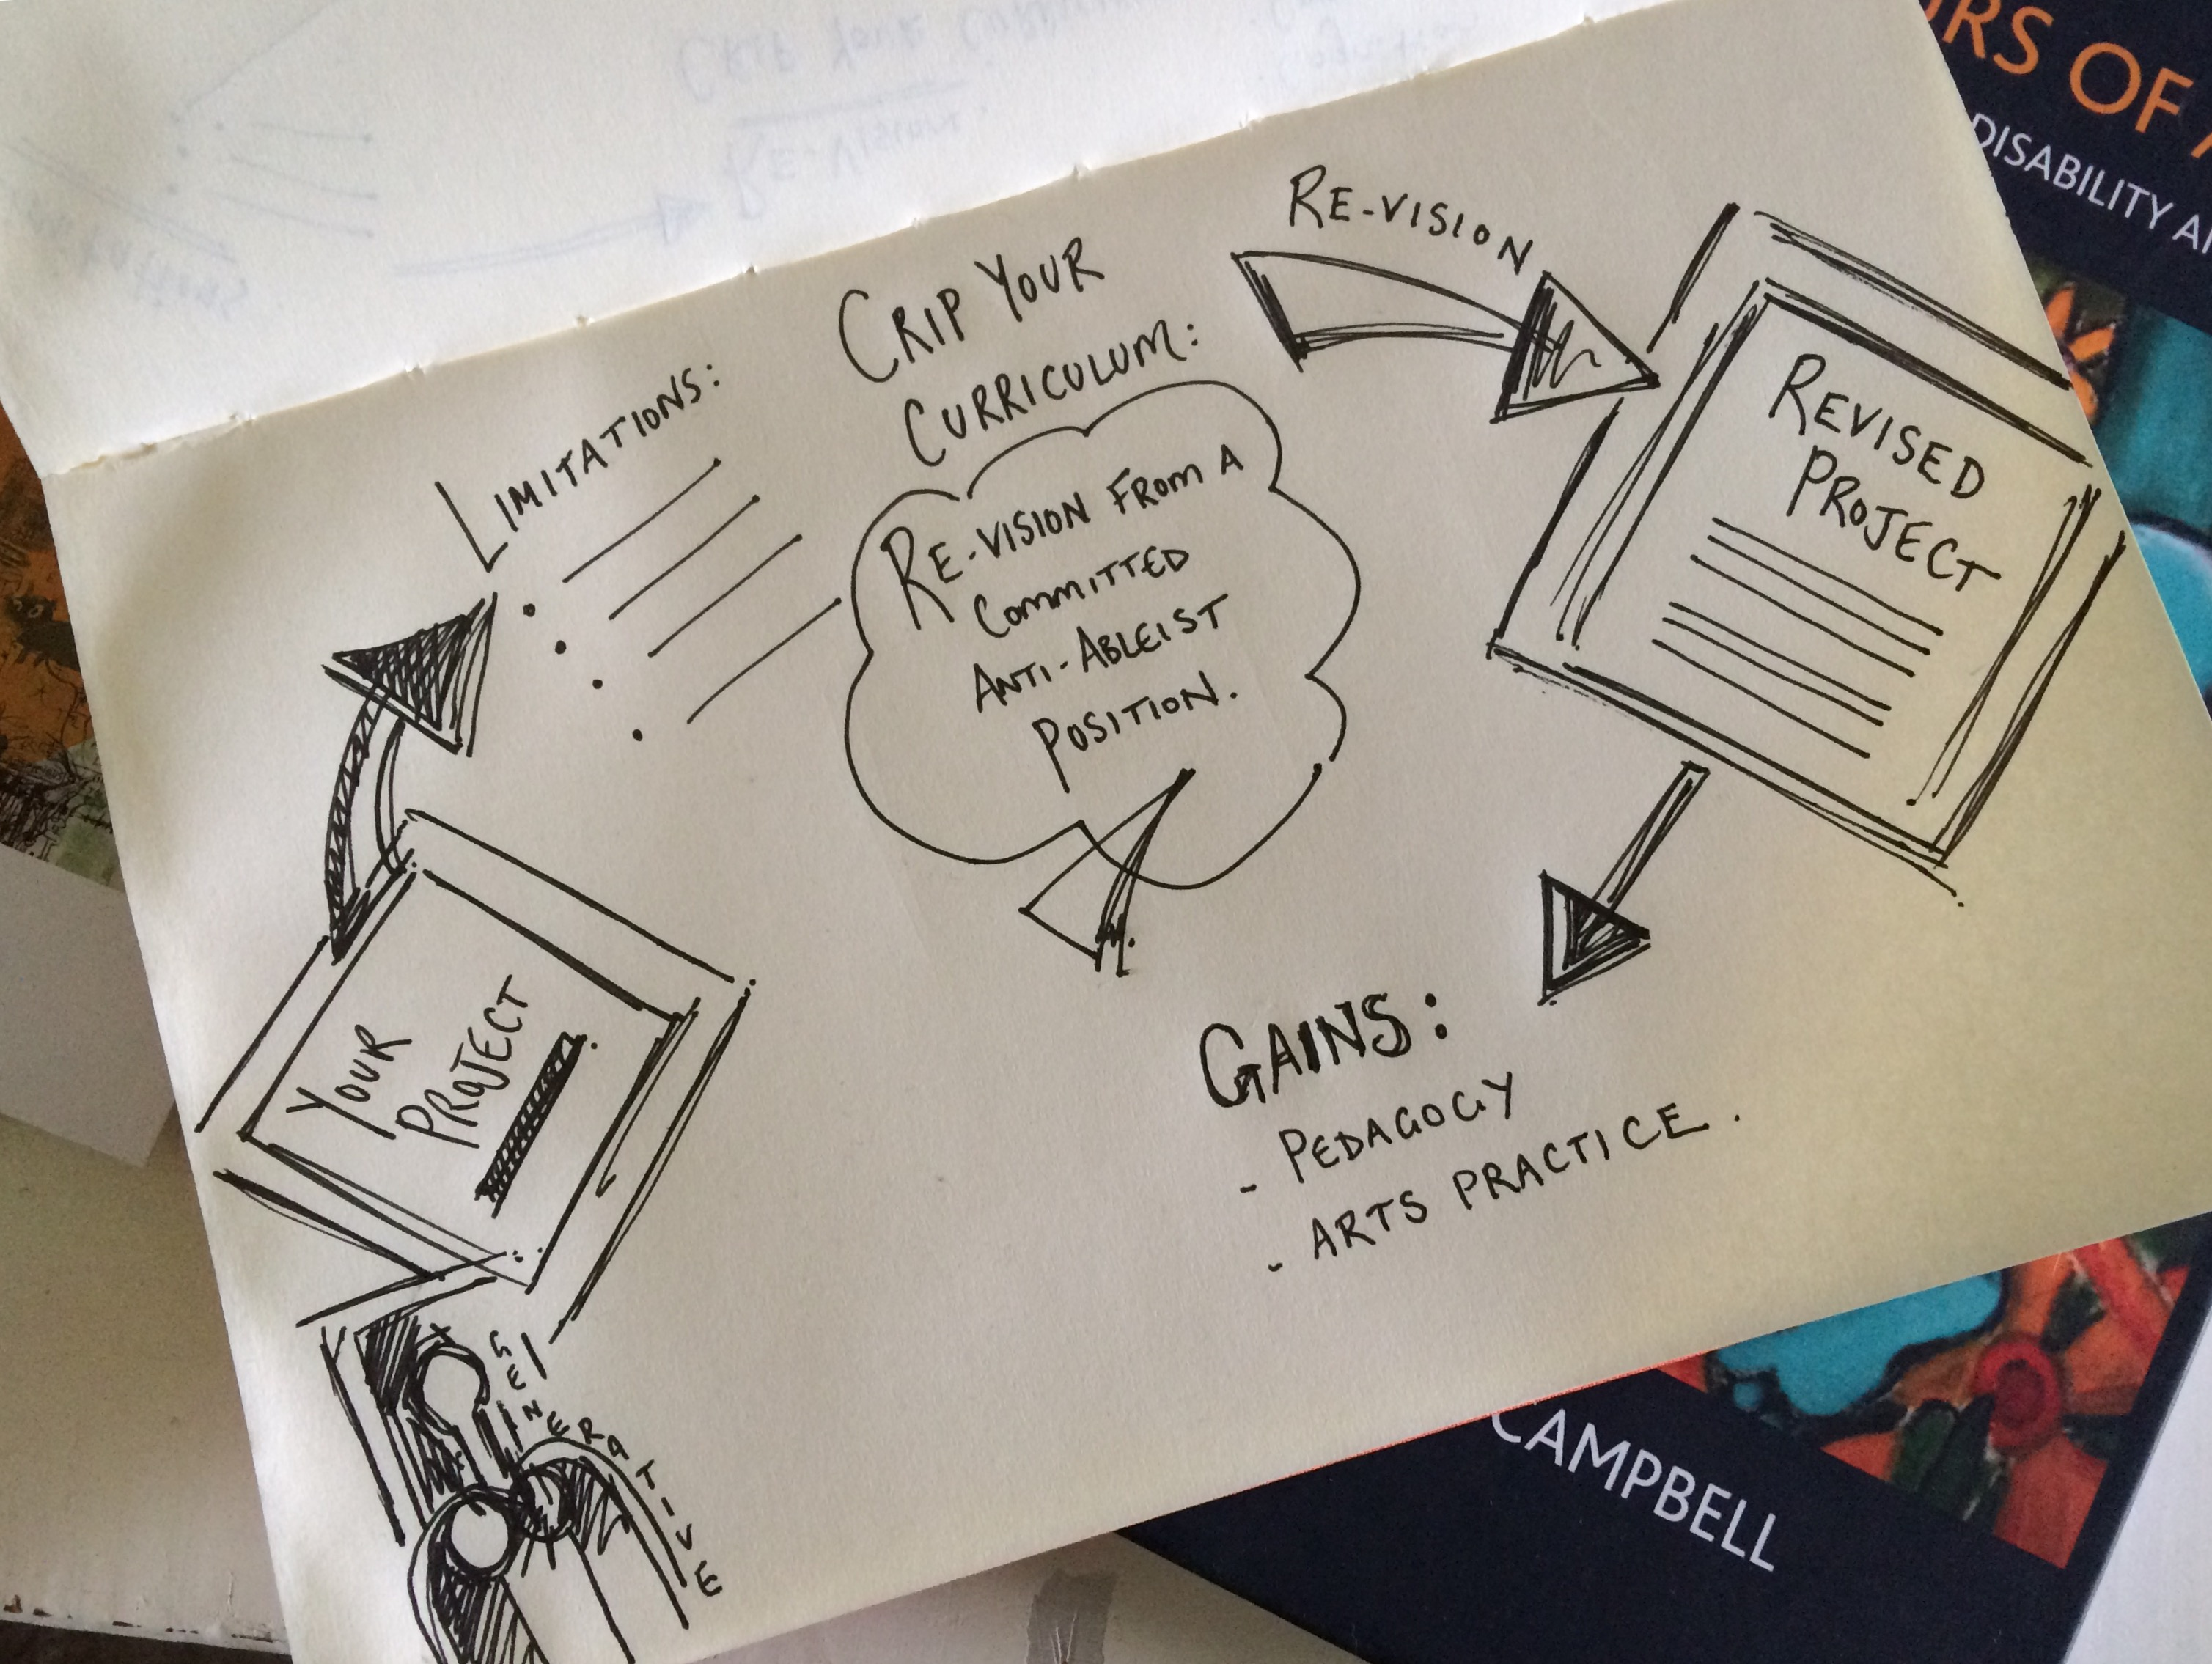 CRIP YOUR CURRICU
RE-VISION.
RE-VISION
CRIP YOUR
CURRICULUM:
LIMITATIONS:
RE-VISION FROM A
COMMITTED
ANTI-ABLEIST
POSITION.
REVISED
PROJECT
YOUR
PROJECT
GAINS:
- PEDAGOGY
- ARTS PRACTICE.
GENERATIVE
RS OF
DISABILITY
CAMPBELL